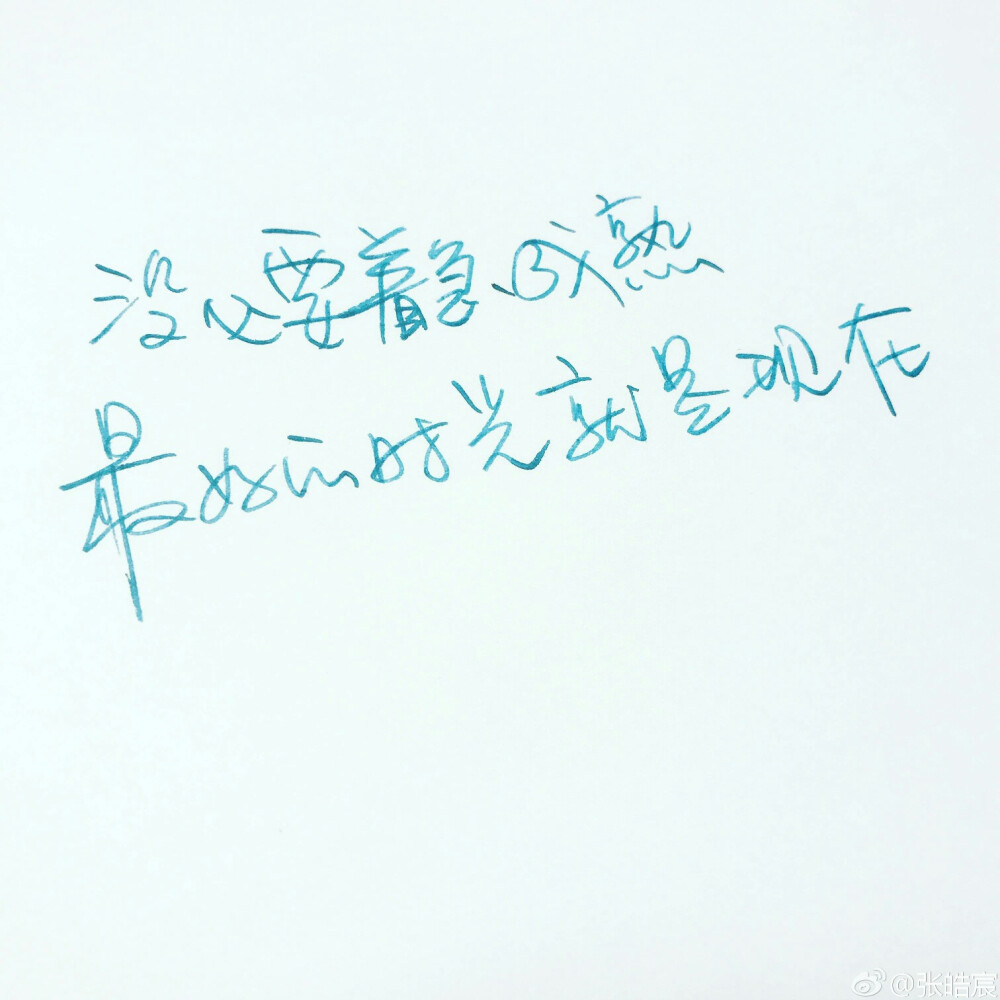 没必要着急成熟
最好的时光就是现在
@张皓宸